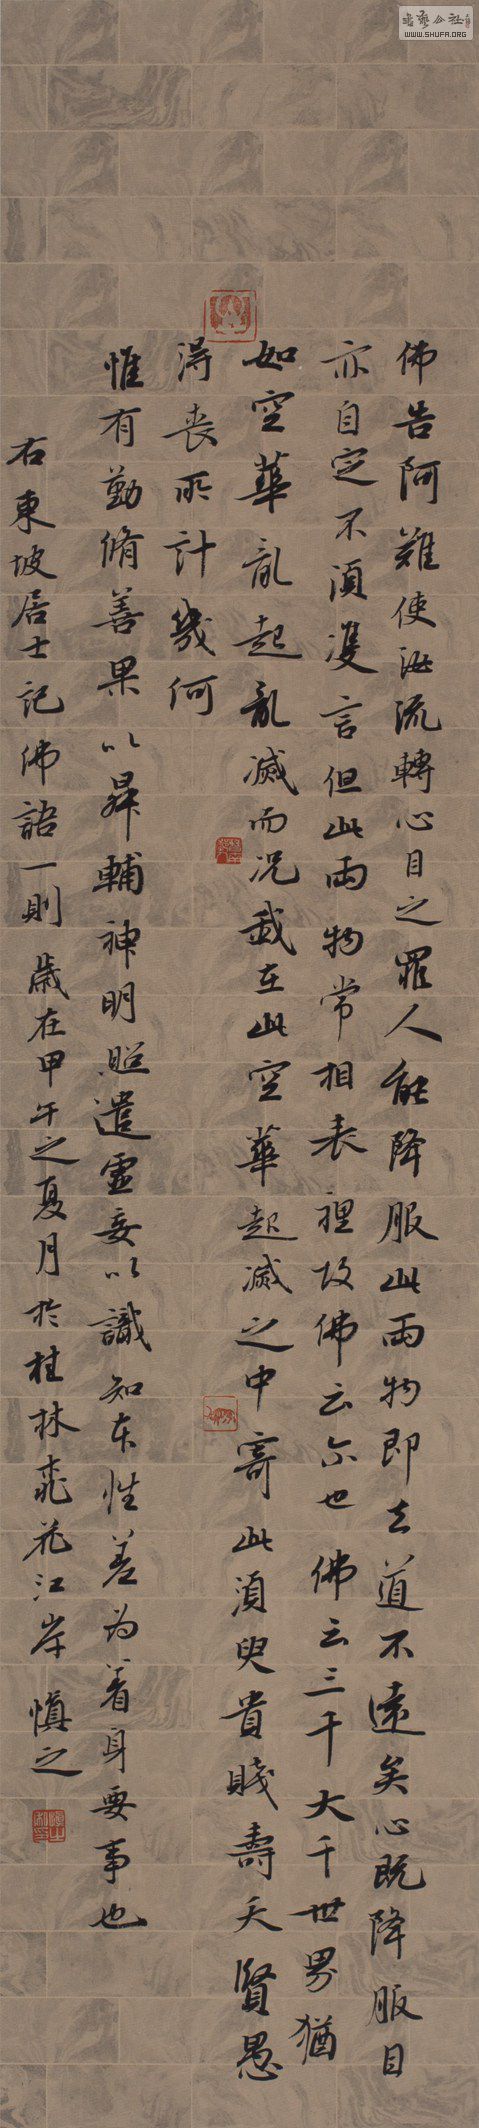 佛告阿難使汝流轉心目之罪人能降服此兩物即去道不遠矣心既降服目
亦自定不須雙言但此兩物常相表裡故佛云尔也佛云三千大千世界猶
如空華亂起亂滅而况我在此空華起滅之中寄此須臾貴賤壽夭賢愚
得喪所計幾何
惟有勤脩善果以昇輔神明照遣虛妄以識知本性差為着身要事也
右東坡居士記佛語一則歲在甲午之夏月於桂林飛花江岸慎之
WWW.SHUFA.ORG